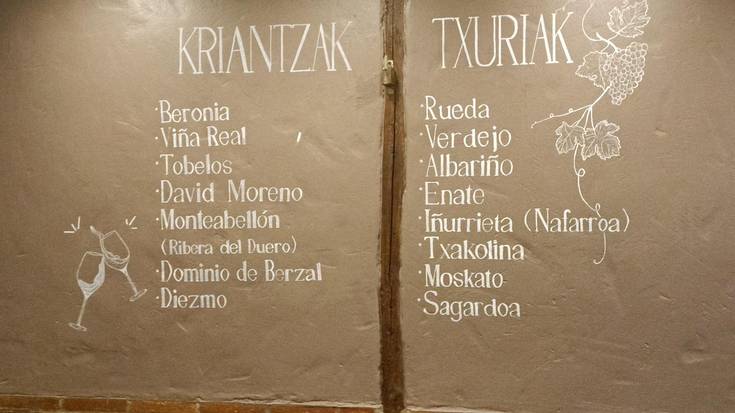 KRIANTZAK
· Beronia
· Viña Real
· Tobelos
· David Moreno
· Monteabellón
(Ribera del Duero)
· Dominio de Berzal
· Diezmo
TXURIAK
· Rueda
· Verdejo
· Albariño
· Enate
· Iñurrieta (Nafarroa)
· Txakolina
· Moskato
· Sagardoa